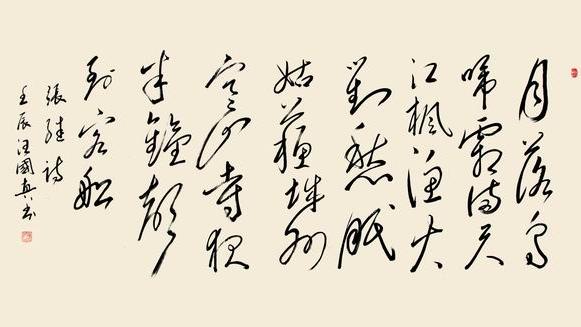 月落烏
啼霜滿天
江楓漁火
對愁眠
姑蘇城外
寒山寺夜
半鐘聲
到客船
張繼詩
壬辰汪國真書